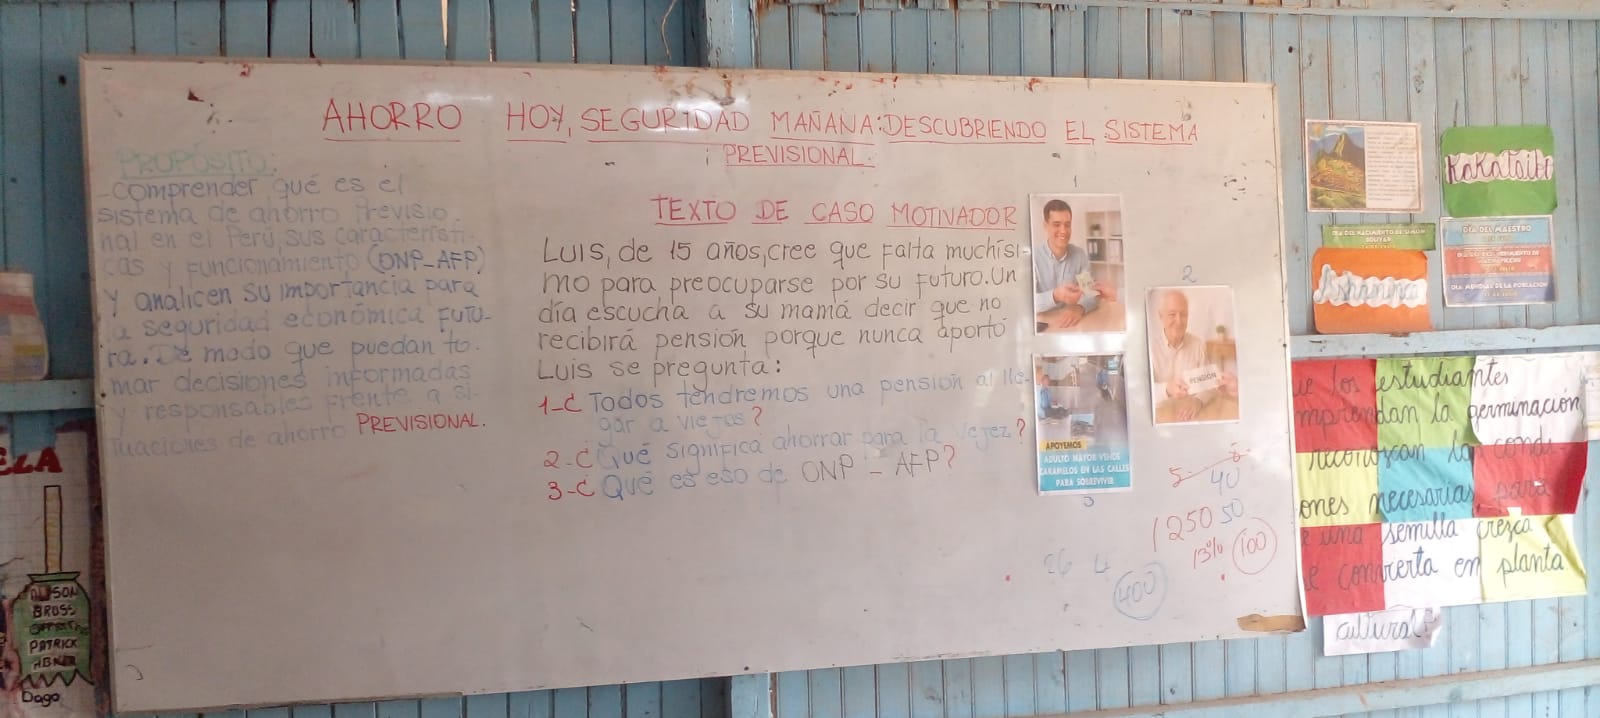 AHORRO HOY, SEGURIDAD MAÑANA: DESCUBRIENDO EL SISTEMA
PREVISIONAL.
PROPÓSITO:
-Comprender qué es el
sistema de ahorro Previsio-
nal en el Perú, sus característi-
cas y funcionamiento (ONP-AFP)
y analicen su importancia para
la seguridad económica futu-
ra. De modo que puedan to-
mar decisiones informadas
y responsables frente a si-
tuaciones de ahorro PREVISIONAL.
TEXTO DE CASO MOTIVADOR
Luis, de 15 años, cree que falta muchísi-
mo para preocuparse por su futuro. Un
día escucha a su mamá decir que no
recibirá pensión porque nunca aportó
Luis se pregunta:
1-¿Todos tendremos una pensión al lle-
gar a viejos?
2-¿Qué significa ahorrar para la vejez?
3-¿Qué es eso de ONP - AFP?
1
2
PENSIÓN
APOYEMOS
ADULTO MAYOR VENDE
CARAMELOS EN LAS CALLES
PARA SOBREVIVIR
3
40
1250 50
13% 100
26 4 400
Kakataibo
DIA DEL NACIMIENTO DE SIMON
BOLIVAR
Ashaninka
DIA DEL MAESTRO
DIA MUNDIAL DE LA POBLACION
ue los estudiantes
mprendan la germinación
reconozcan las condi-
ones necesarias para
e una semilla crezca
e convierta en planta
cultural?
ELA
ALISON
BRUSS
PATRICK
ABNER
Dago